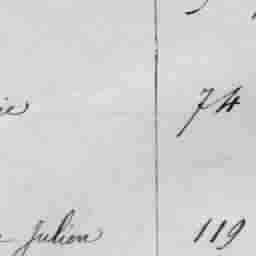 74
Julien 119